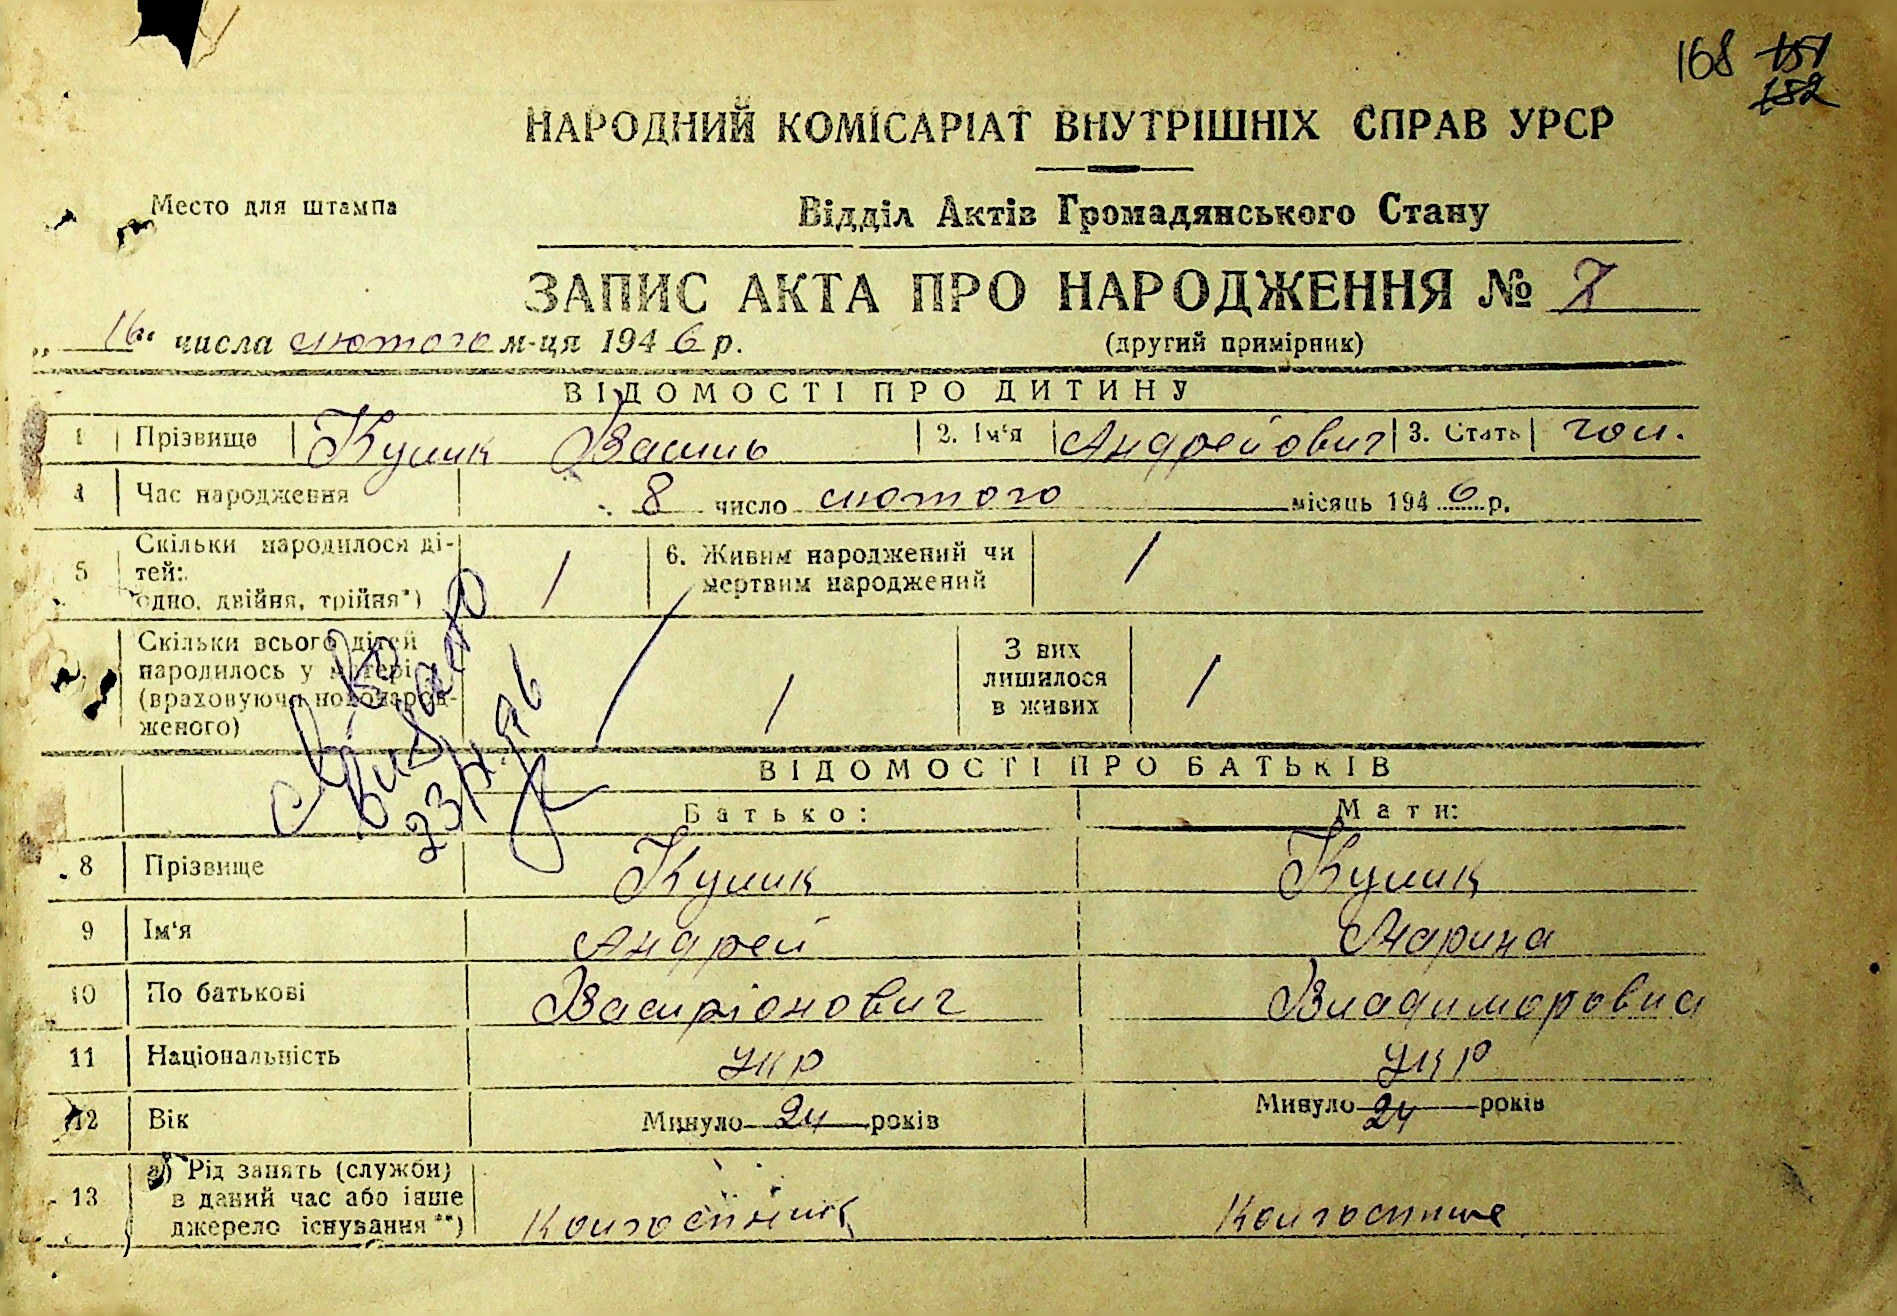 168 151
152
НАРОДНИЙ КОМІСАРІАТ ВНУТРІШНІХ СПРАВ УРСР
Место для штампа
Відділ Актів Громадянського Стану
ЗАПИС АКТА ПРО НАРОДЖЕННЯ № 7
„ 16 " числа лютого м-ця 194 6 р.
(другий примірник)
ВІДОМОСТІ ПРО ДИТИНУ
1 Прізвище Кулик Василь 2. Ім'я Андрейович 3. Стать чол.
4 Час народження 8 число лютого місяць 194 6 р.
5 Скільки народилося ді-
тей:
одно, двійня, трійня*) 1
6. Живим народжений чи
мертвим народжений 1
Скільки всього дітей
народилось у матері
(враховуючи новонарод-
женого) 1
З них
лишилося
в живих 1
ВІДОМОСТІ ПРО БАТЬКІВ
Батько: Мати:
8 Прізвище Кулик Кулик
9 Ім'я Андрей Марина
10 По батькові Владиморовна
11 Національність укр укр
12 Вік Минуло 24 років Минуло 24 років
13 а) Рід занять (служби)
в даний час або інше
джерело існування **) колгоспник